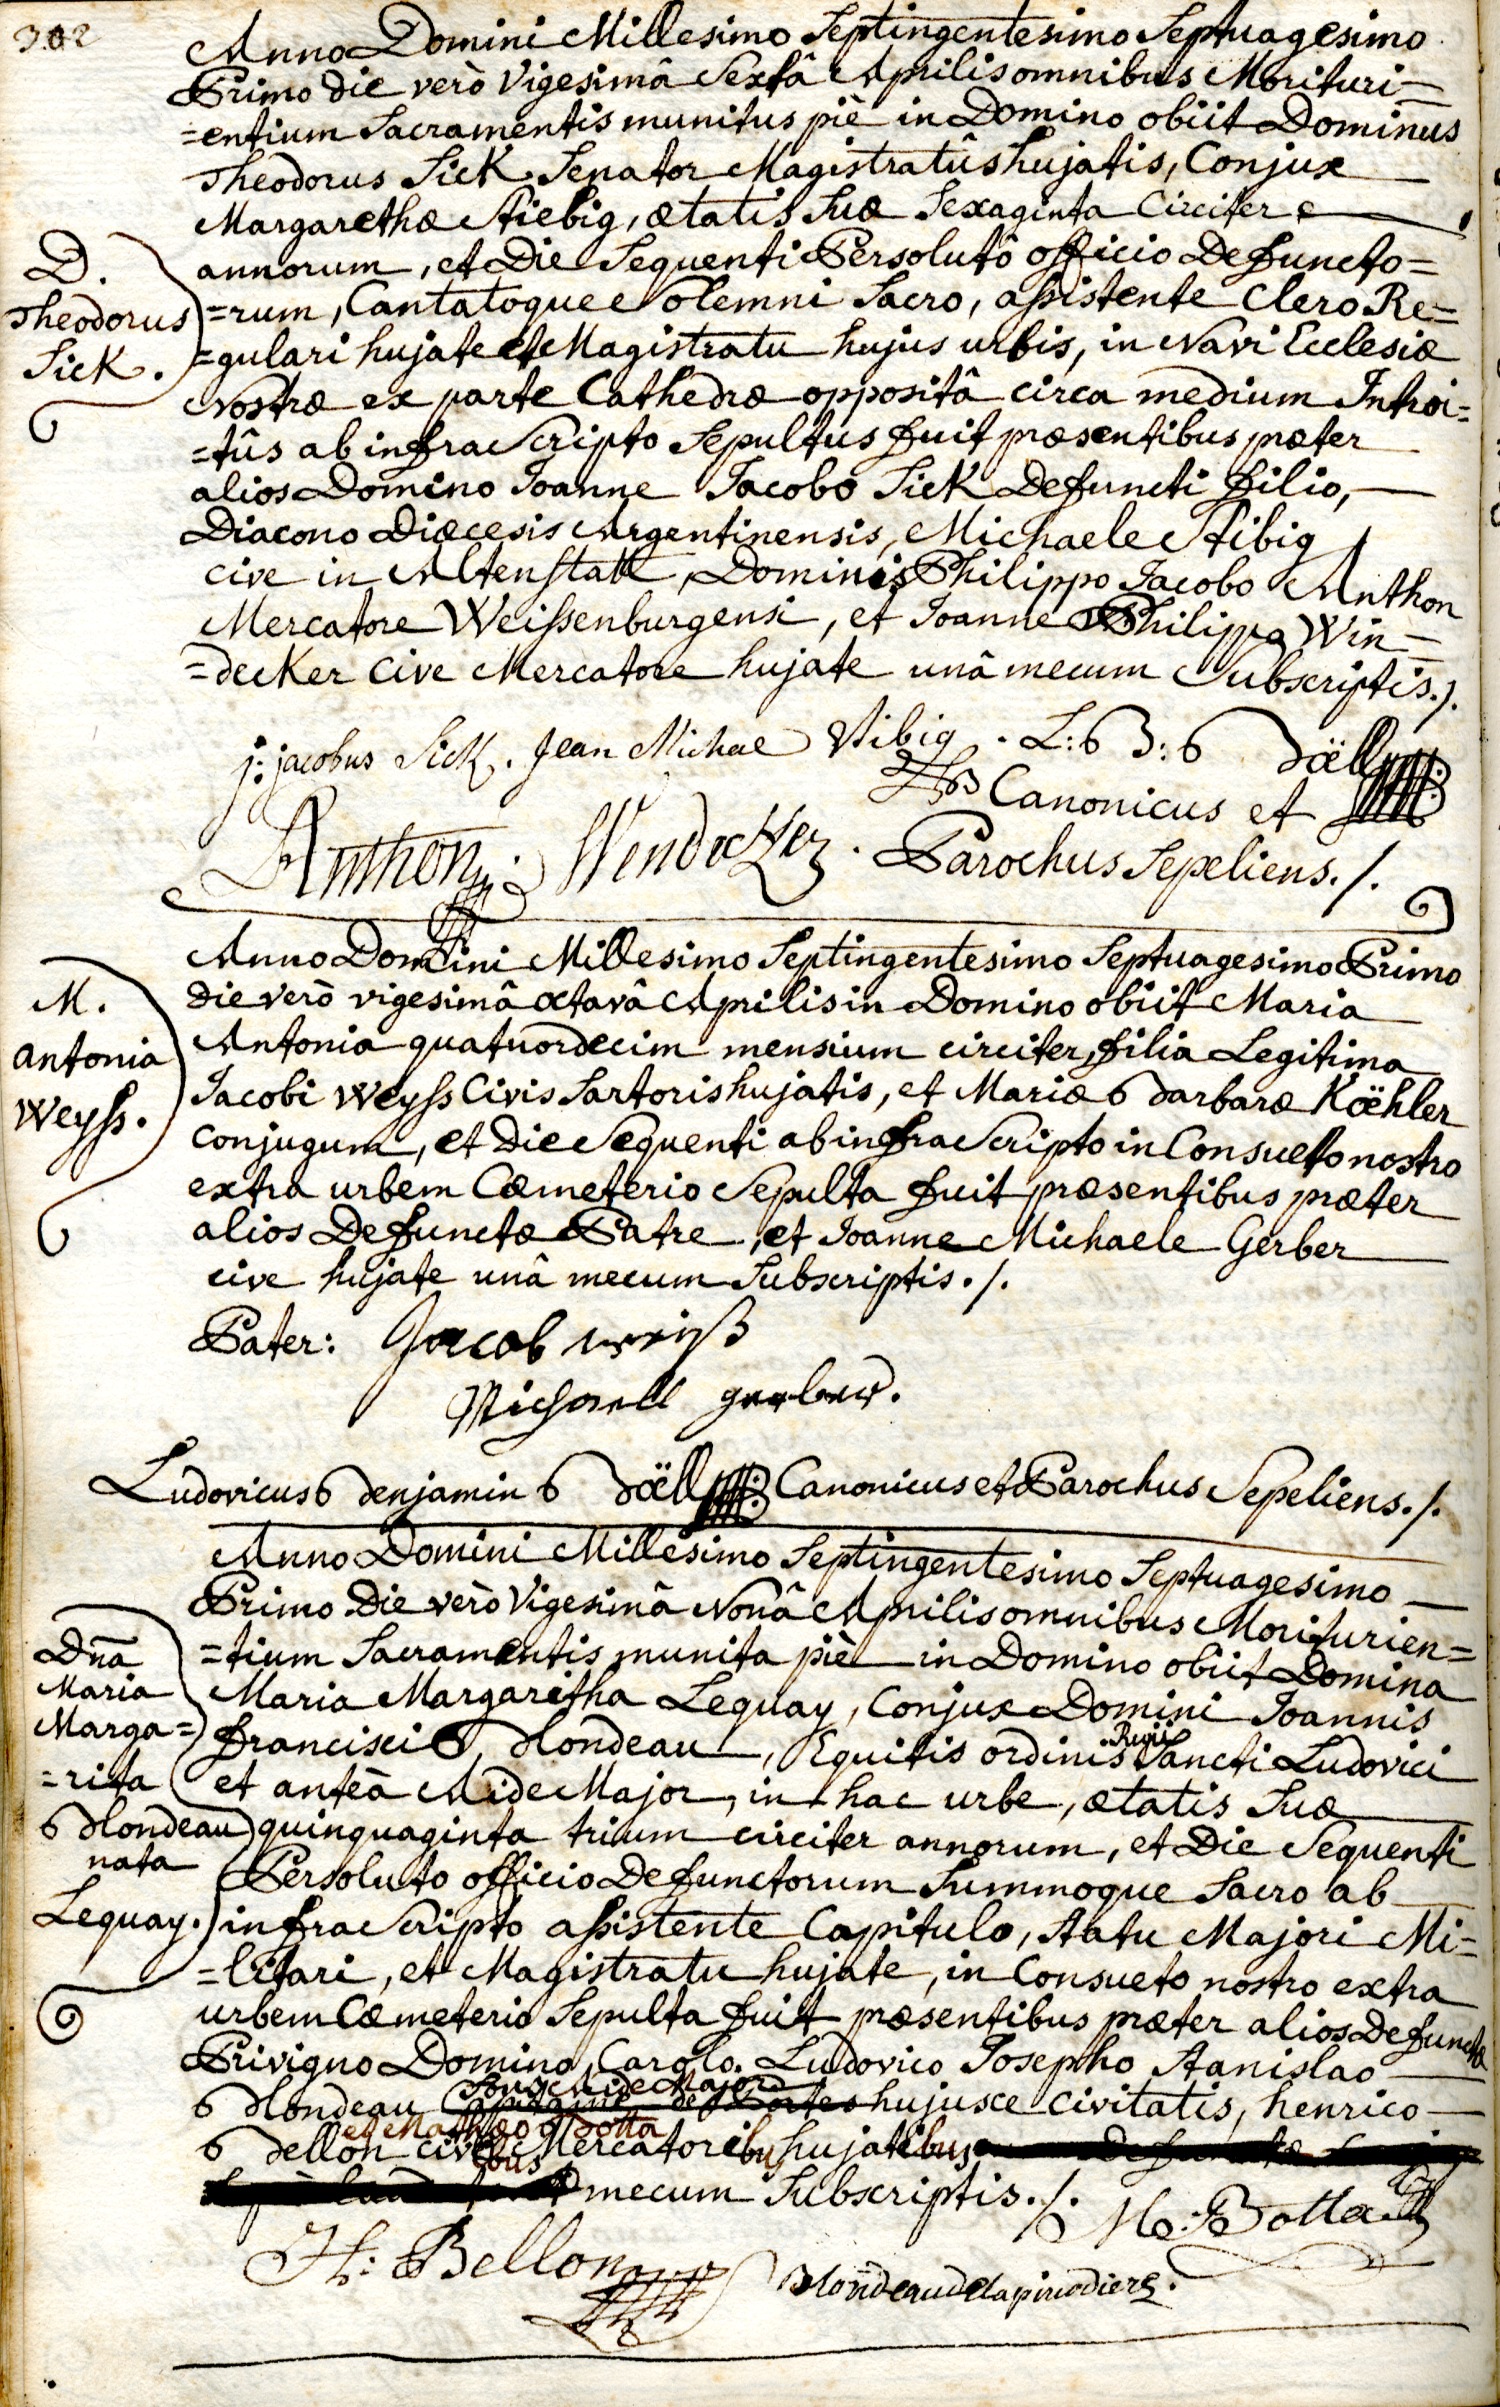 302
Anno Domini Millesimo Septingentesimo Septuagesimo
Primo die verò Vigesimâ Sextâ Aprilis omnibus Morituri=
=entium Sacramentis munitus piè in Domino obiit Dominus
Theodorus Sick Senator Magistratûs hujatis, Conjux
Margarethæ Stiebig, ætatis Suæ Sexaginta Circiter
annorum, et Die Sequenti Persoluto officio Defuncto=
=rum, Cantatoque Solemni Sacro, assistente Clero Re=
=gulari hujate et Magistratu hujus urbis, in Navi Ecclesiæ
Nostræ ex parte Cathedræ oppositâ circa medium Introi=
=tûs ab infra Scripto Sepultus fuit præsentibus præter
alios Domino Joanne Jacobo Sick Defuncti filio,
Diacono Diœcesis Argentinensis, Michaele Stibig
cive in Altenstatt, Dominis Philippo Jacobo Anthon
Mercatore Weissenburgensi, et Joanne Philippo Win=
=decker Cive Mercatore hujate unâ mecum Subscriptis./.
D.
Theodorus
Sick.
j: jacobus Sick. Jean Michae Stibig. L: B: Böll
Canonicus et
Anthon. Wendecker. Parochus Sepeliens./.
Anno Domini Millesimo Septingentesimo Septuagesimo Primo
die verò vigesimâ octavâ Aprilis in Domino obiit Maria
Antonia quatuordecim mensium circiter, filia Legitima
Jacobi Weyss Civis Sartoris hujatis, et Mariæ Barbaræ Köhler
conjugum, et Die Sequenti ab infra Scripto in Consueto nostro
extra urbem Cœmeterio Sepulta fuit præsentibus præter
alios Defunctæ Patre, et Joanne Michaele Gerber
cive hujate unâ mecum Subscriptis./.
M.
antonia
Weyss.
Pater: Jacob weiß
Michaell gerber.
Ludovicus Benjamin Böll Canonicus et Parochus Sepeliens./.
Anno Domini Millesimo Septingentesimo Septuagesimo
Primo Die verò Vigesimâ Nonâ Aprilis omnibus Moriturien=
=tium Sacramentis munita piè in Domino obiit Domina
Maria Margaritha Lequay, Conjux Domini Joannis
francisci Blondeau, Equitis ordinis Regii Sancti Ludovici
et anteà Aide Major, in hac urbe, ætatis Suæ
quinquaginta trium circiter annorum, et Die Sequenti
Persoluto officio Defunctorum Summoque Sacro ab
infra Scripto assistente Capitulo, Statu Majori Mi=
=litari, et Magistratu hujate, in Consueto nostro extra
urbem Cœmeterio Sepulta fuit præsentibus præter alios Defunctæ
Privigno Domino Carolo Ludovico Josepho Stanislao
Sous Aide Major
Blondeau Capitaine des Portes hujusce Civitatis, henrico
et Mathæo Botta
Bellon civibus Mercatoribus hujatibus
mecum Subscriptis./.
Dna
Maria
Marga=
=rita
Blondeau
nata
Lequay.
M: Botta
H: Bellon
Blondeau